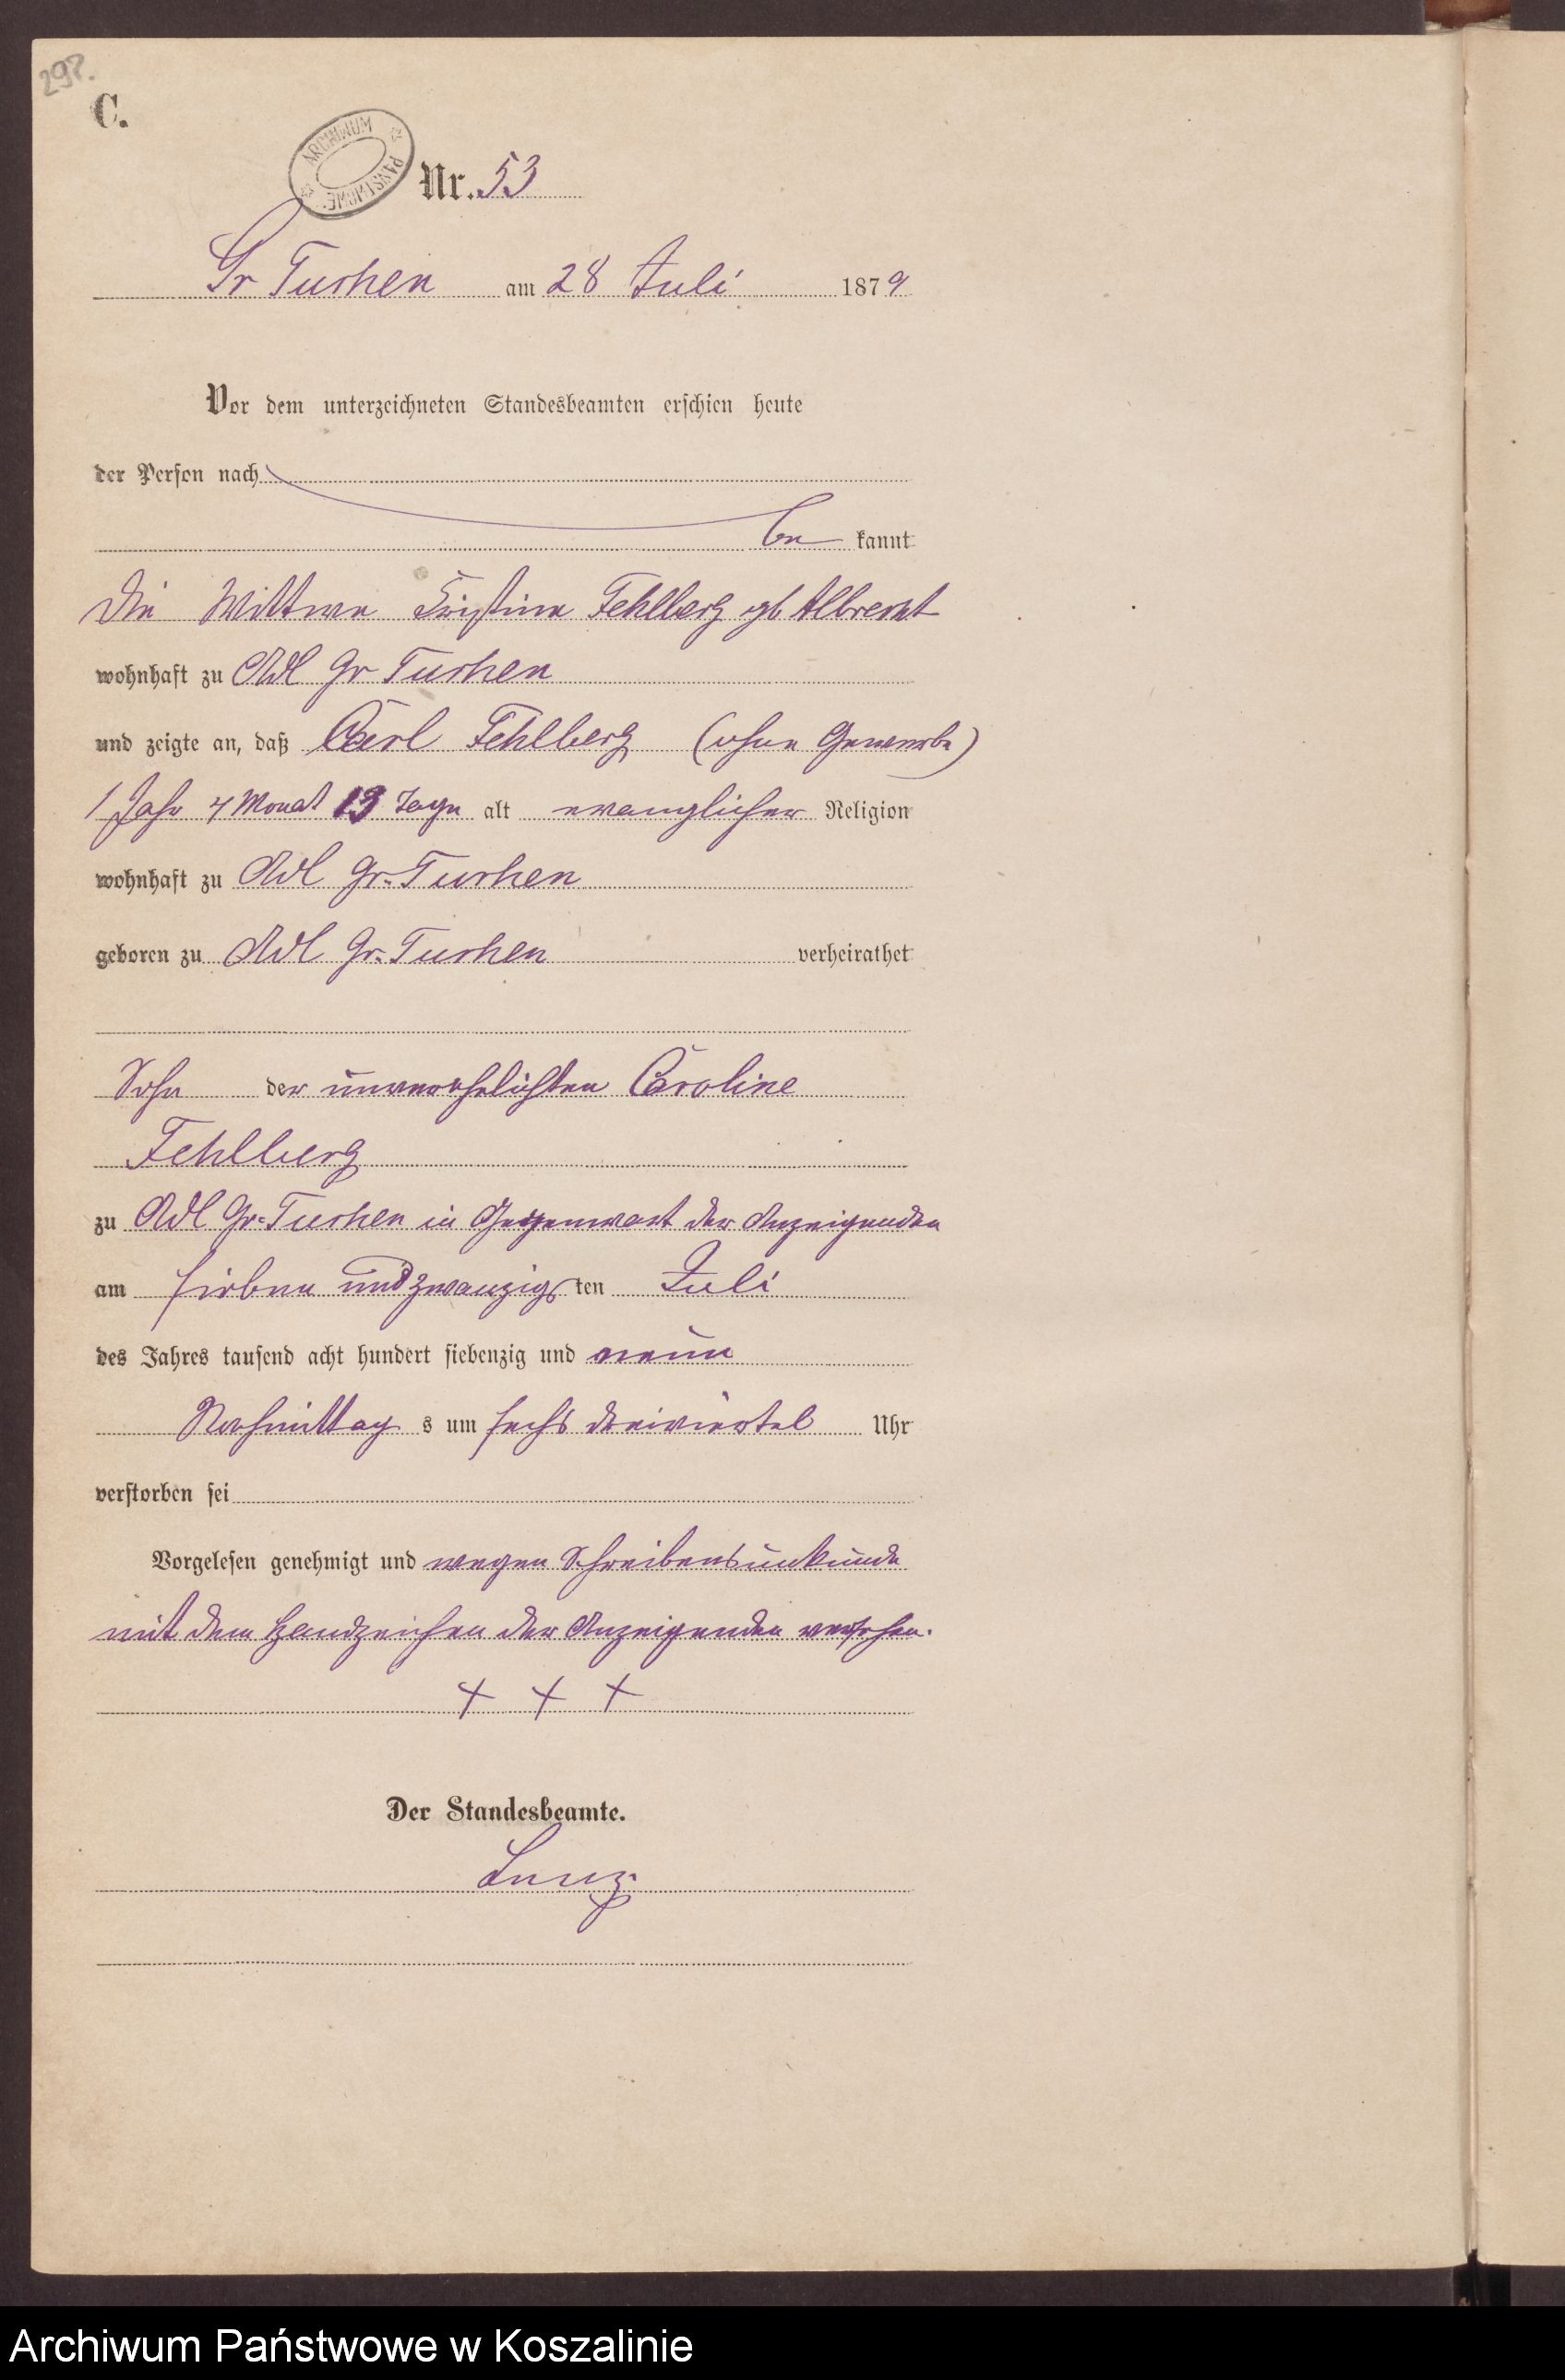 292.
C.
ARCHIWUM PAŃSTWOWE
Nr. 53
Gr Tuchen am 28 Juli 1879
Vor dem unterzeichneten Standesbeamten erschien heute
der Person nach
be kannt
die Wittwe Fehlberg gb Albrecht
wohnhaft zu Adl Gr Tuchen
und zeigte an, daß Carl Fehlberg (ohne Gewerbe)
1 Jahr 4 Monat 13 Tage alt evanglischer Religion
wohnhaft zu Adl Gr. Tuchen
geboren zu Adl Gr. Tuchen verheirathet
Sohn der unverehelichten Caroline
Fehlberg
zu Adl Gr. Tuchen in Gegenwart der Anzeigenden
am sieben und zwanzigsten Juli
des Jahres tausend acht hundert siebenzig und neun
Nachmittag s um sechs dreiviertel Uhr
verstorben sei
Vorgelesen genehmigt und wegen Schreibensunkunde
mit dem Handzeichen der Anzeigenden versehen.
+ + +
Der Standesbeamte.
Archiwum Państwowe w Koszalinie